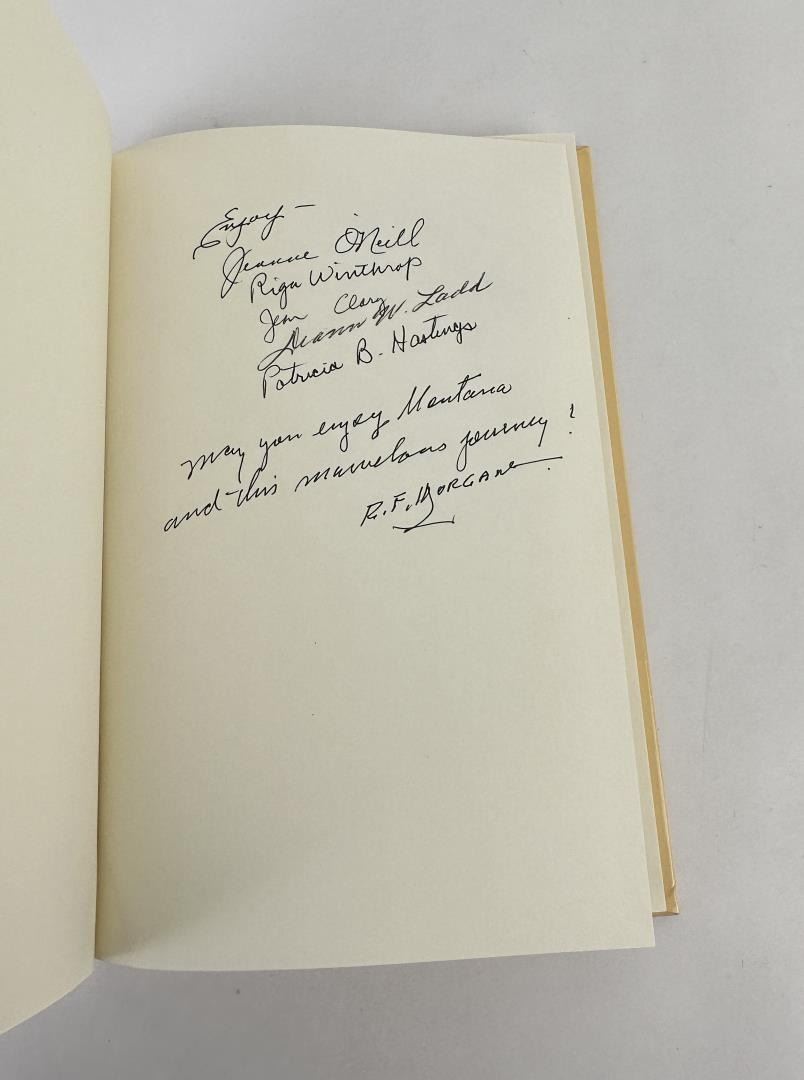 Enjoy —
Jeanne O'Neill
Riga Winthrop
Jean Clary
Diann W. Ladd
Patricia B. Hastings
May you enjoy Montana
and this marvelous journey!
R.F. Morgan